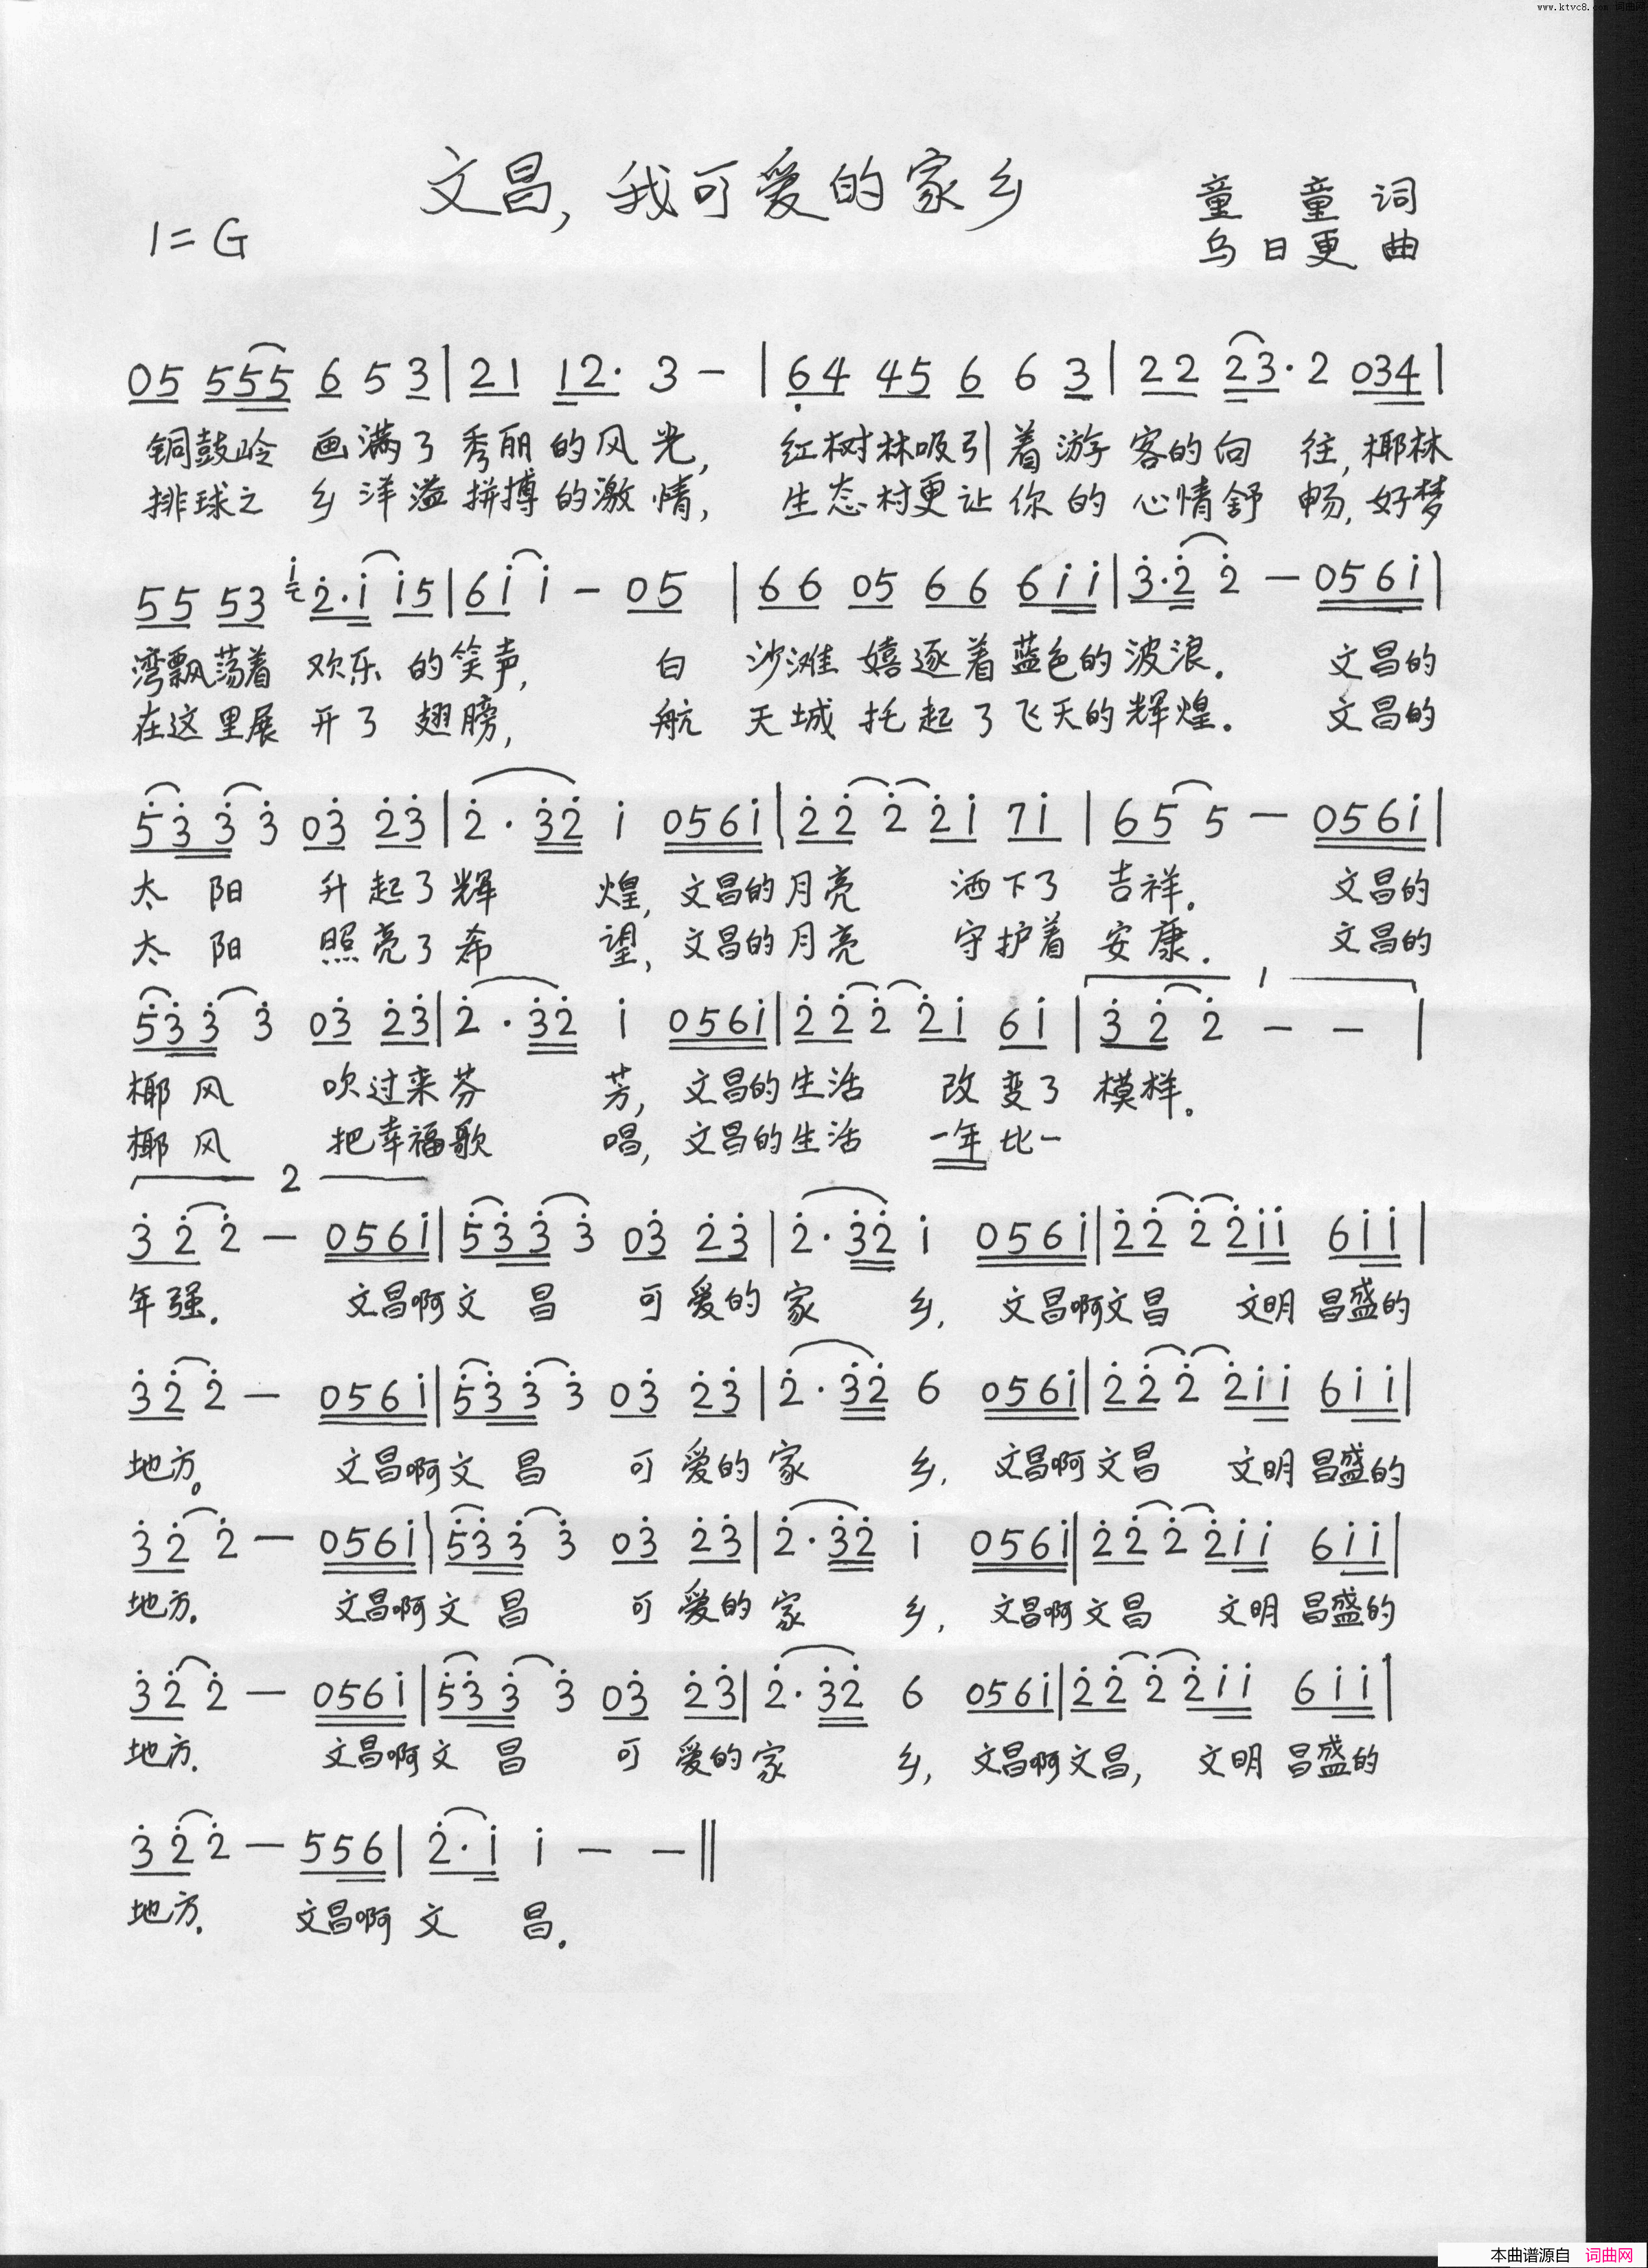 www.ktvc8.com 词曲网
文昌,我可爱的家乡
童 童 词
1=G
乌日更 曲
05 555 6 5 3 | 21 12· 3 - | 64 45 6 6 3 | 22 23·2 034 |
铜鼓岭 画满了秀丽的风光, 红树林吸引着游客的向往,椰林
排球之乡洋溢拼搏的激情, 生态村更让你的心情舒畅,好梦
55 53 i 2̇·i i5 | 6i i - 05 | 66 05 66 6ii | 3̇·2̇ 2̇ - 056i |
湾飘荡着欢乐的笑声, 白沙滩嬉逐着蓝色的波浪. 文昌的
在这里展开了翅膀, 航天城托起了飞天的辉煌. 文昌的
5̇3̇3̇ 3̇ 03̇ 2̇3̇ | 2̇·3̇2̇ i 056i | 2̇2̇ 2̇ 2̇i 7i | 65 5 - 056i |
太阳 升起了辉煌,文昌的月亮 洒下了吉祥. 文昌的
太阳 照亮了希望,文昌的月亮 守护着安康. 文昌的
1
5̇3̇3̇ 3̇ 03̇ 2̇3̇ | 2̇·3̇2̇ i 056i | 2̇2̇ 2̇ 2̇i 6i | 3̇2̇ 2̇ - - |
椰风 吹过来芬芳,文昌的生活 改变了模样.
椰风 把幸福歌唱,文昌的生活 一年比一
2
3̇2̇ 2̇ - 056i | 5̇3̇3̇ 3̇ 03̇ 2̇3̇ | 2̇·3̇2̇ i 056i | 2̇2̇ 2̇ 2̇ii 6ii |
年强. 文昌啊文昌 可爱的家乡, 文昌啊文昌 文明昌盛的
3̇2̇ 2̇ - 056i | 5̇3̇3̇ 3̇ 03̇ 2̇3̇ | 2̇·3̇2̇ 6 056i | 2̇2̇ 2̇ 2̇ii 6ii |
地方。 文昌啊文昌 可爱的家乡, 文昌啊文昌 文明昌盛的
3̇2̇ 2̇ - 056i | 5̇3̇3̇ 3̇ 03̇ 2̇3̇ | 2̇·3̇2̇ i 056i | 2̇2̇ 2̇ 2̇ii 6ii |
地方. 文昌啊文昌 可爱的家乡, 文昌啊文昌 文明昌盛的
3̇2̇ 2̇ - 056i | 5̇3̇3̇ 3̇ 03̇ 2̇3̇ | 2̇·3̇2̇ 6 056i | 2̇2̇ 2̇ 2̇ii 6ii |
地方. 文昌啊文昌 可爱的家乡, 文昌啊文昌, 文明昌盛的
3̇2̇ 2̇ - 556 | 2̇·i i - - ‖
地方. 文昌啊文昌.
本曲谱源自 词曲网